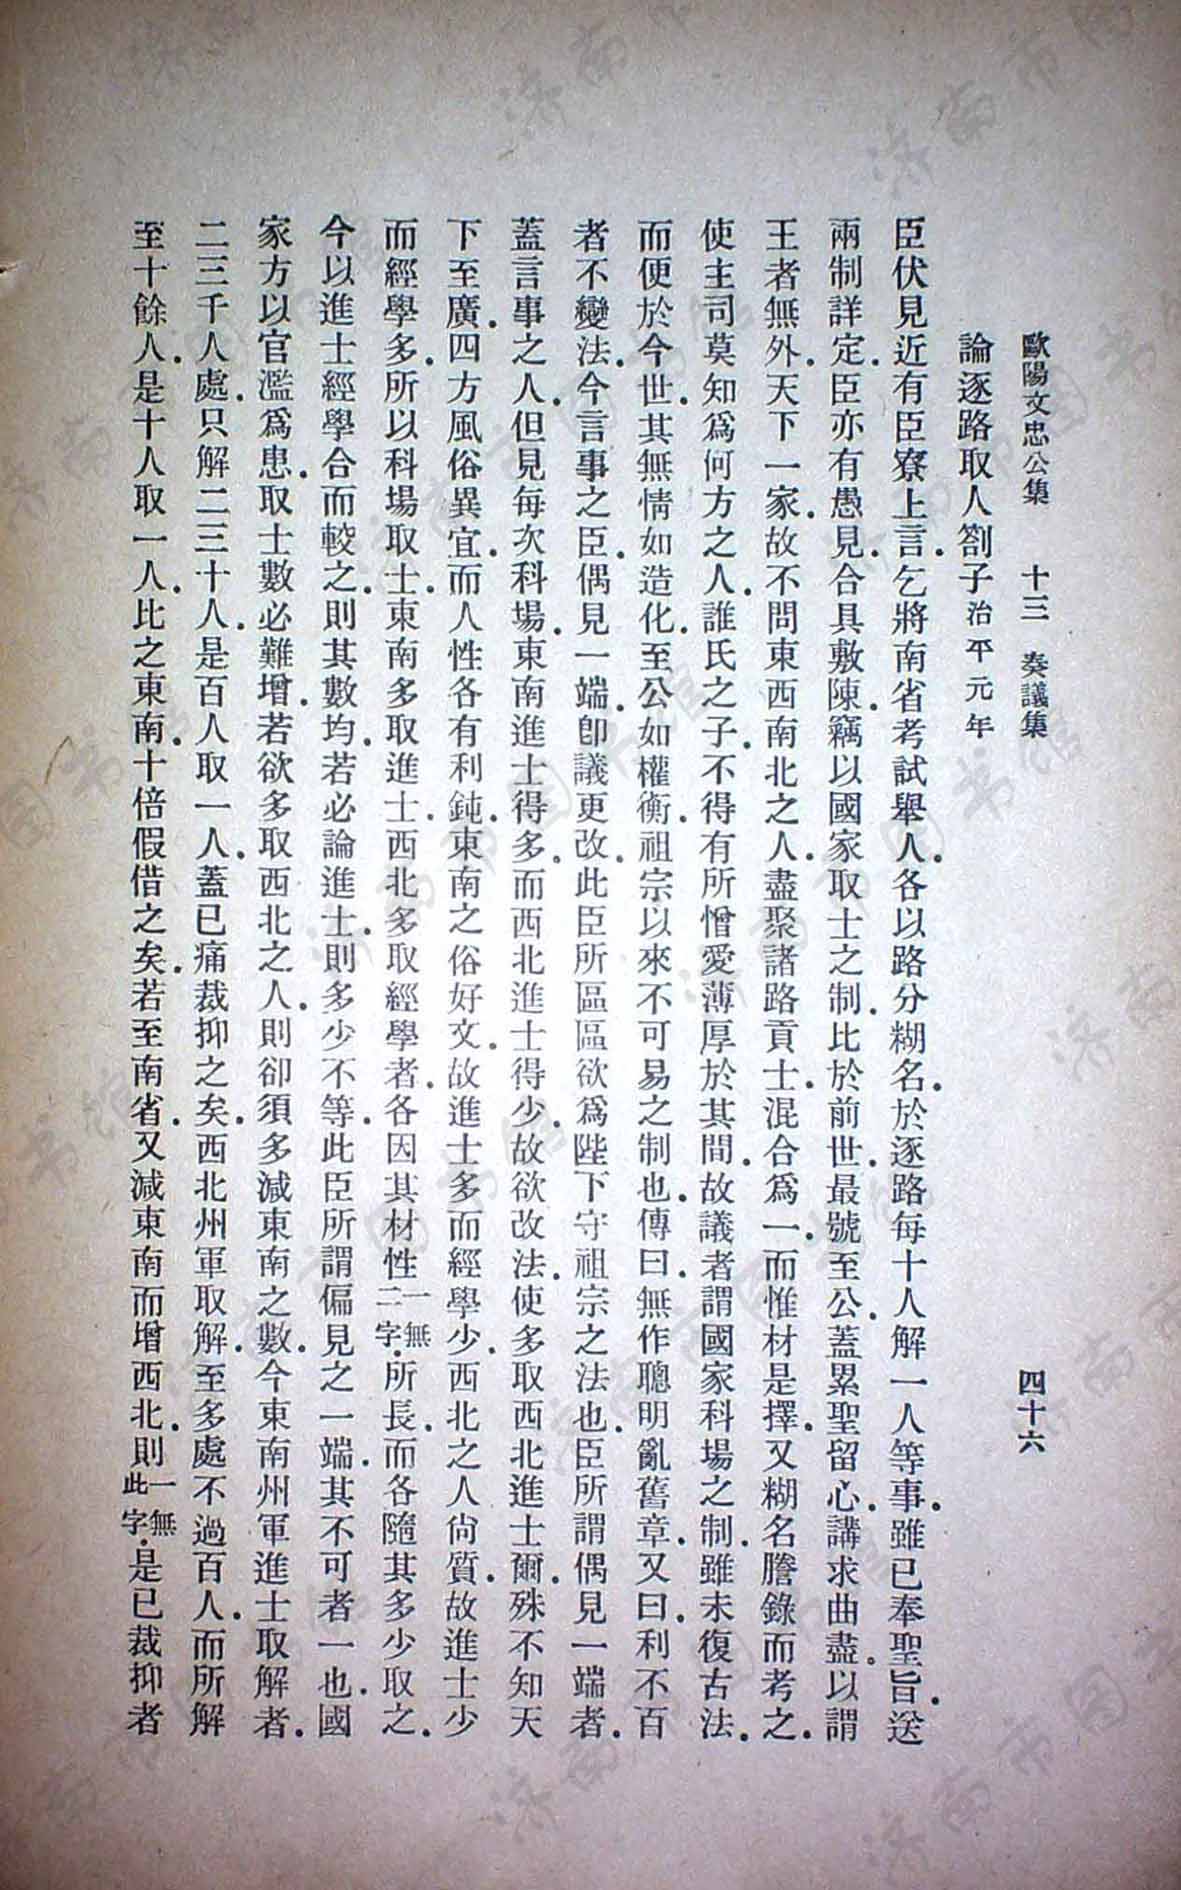 歐陽文忠公集　十三　奏議集　四十六
論逐路取人劄子治平元年
臣伏見近有臣寮上言．乞將南省考試舉人．各以路分糊名．於逐路每十人解一人等事．雖已奉聖旨．送
兩制詳定．臣亦有愚見．合具敷陳．竊以國家取士之制．比於前世．最號至公．蓋累聖留心．講求曲盡．以謂
王者無外．天下一家．故不問東西南北之人．盡聚諸路貢士．混合為一．而惟材是擇．又糊名謄錄而考之．
使主司莫知為何方之人．誰氏之子．不得有所憎愛薄厚於其間．故議者謂國家科場之制．雖未復古法．
而便於今世．其無情如造化．至公如權衡．祖宗以來不可易之制也．傳曰．無作聰明亂舊章．又曰．利不百
者不變法．今言事之臣．偶見一端．卽議更改．此臣所區區欲為陛下守祖宗之法也．臣所謂偶見一端者．
蓋言事之人．但見每次科場．東南進士得多．而西北進士得少．故欲改法．使多取西北進士爾．殊不知天
下至廣．四方風俗異宜．而人性各有利鈍．東南之俗好文．故進士多而經學少．西北之人尙質．故進士少
而經學多．所以科場取士．東南多取進士．西北多取經學者．各因其材性一無二字．所長．而各隨其多少取之．
今以進士經學合而較之．則其數均．若必論進士．則多少不等．此臣所謂偏見之一端．其不可者一也．國
家方以官濫為患．取士數必難增．若欲多取西北之人．則卻須多減東南之數．今東南州軍進士取解者．
二三千人處．只解二三十人．是百人取一人．蓋已痛裁抑之矣．西北州軍取解．至多處不過百人．而所解
至十餘人．是十人取一人．比之東南．十倍假借之矣．若至南省．又減東南而增西北．則一無此字．是已裁抑者